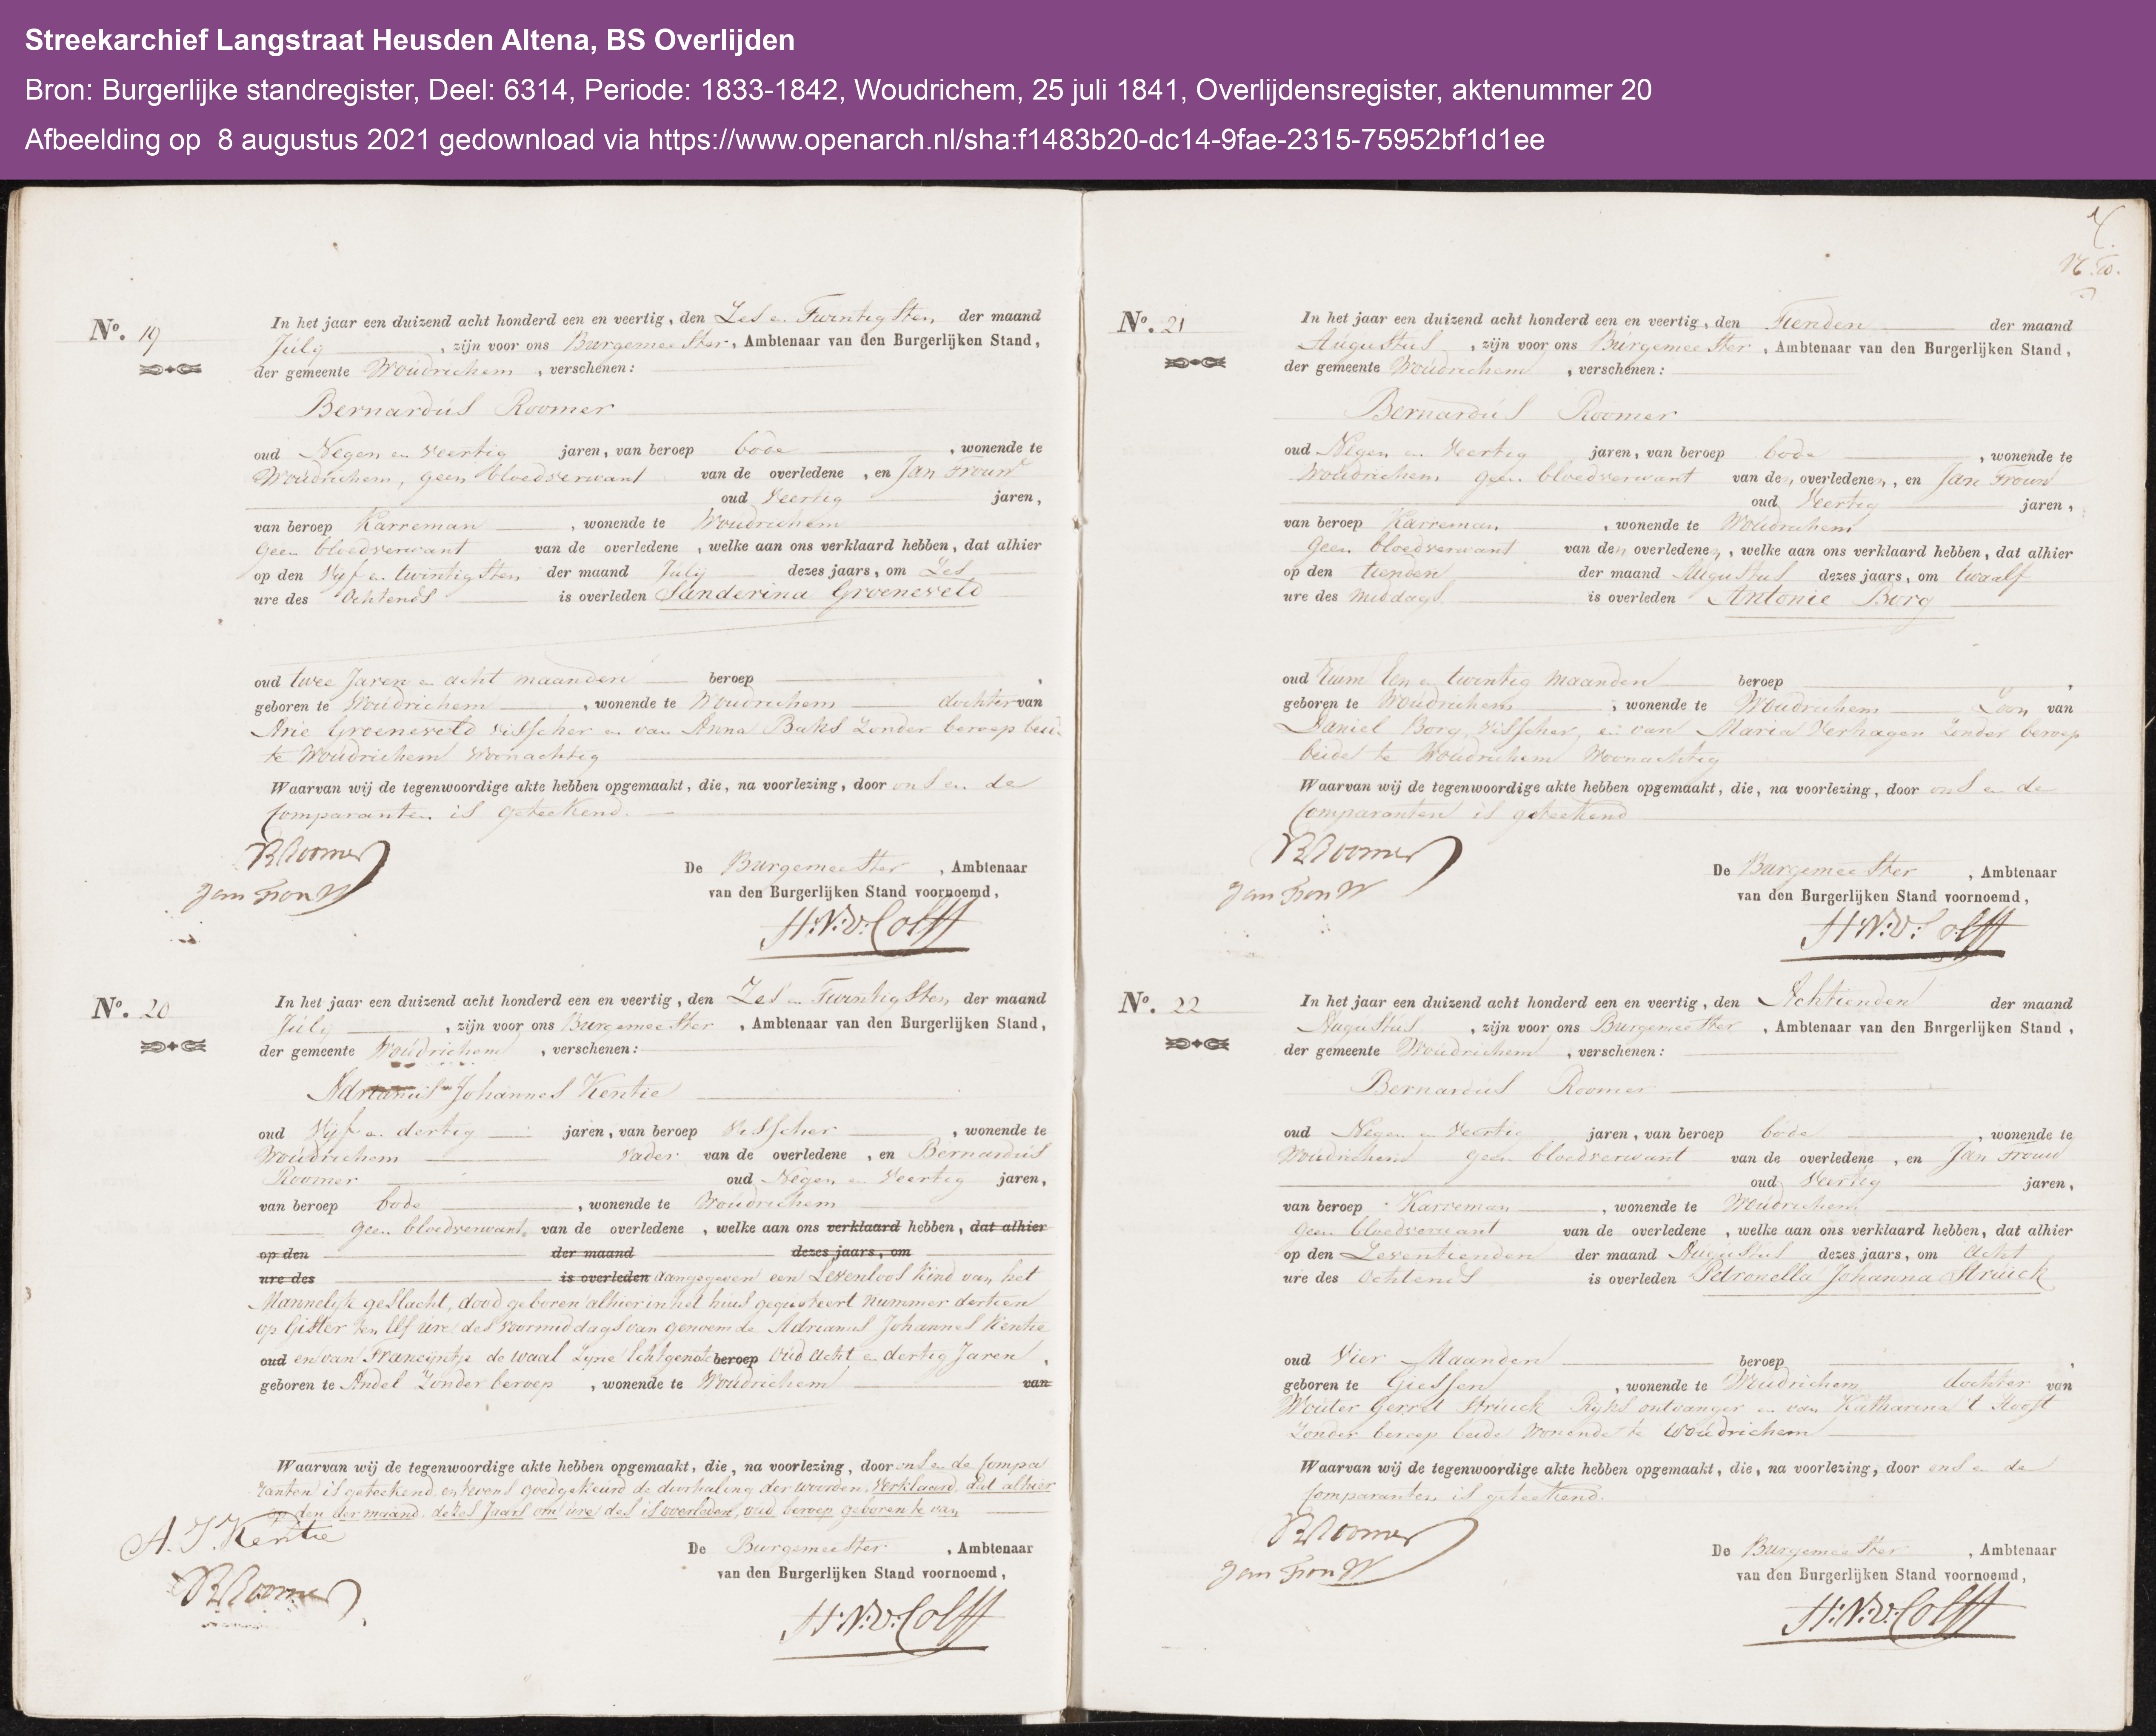 Streekarchief Langstraat Heusden Altena, BS Overlijden
Bron: Burgerlijke standregister, Deel: 6314, Periode: 1833-1842, Woudrichem, 25 juli 1841, Overlijdensregister, aktenummer 20
Afbeelding op 8 augustus 2021 gedownload via https://www.openarch.nl/sha:f1483b20-dc14-9fae-2315-75952bf1d1ee
No. 19
In het jaar een duizend acht honderd een en veertig, den Zes en Twintigsten der maand
July, zijn voor ons Burgemeester, Ambtenaar van den Burgerlijken Stand,
der gemeente Woudrichem, verschenen:
Bernardus Roomer
oud Negen en Veertig jaren, van beroep bode, wonende te
Woudrichem, geen bloedverwant van de overledene, en Jan Trouw
oud Veertig jaren,
van beroep Karreman, wonende te Woudrichem
geen bloedverwant van de overledene, welke aan ons verklaard hebben, dat alhier
op den Vyf en twintigsten der maand July dezes jaars, om Zes
ure des Ochtends is overleden Sanderina Groeneveld
oud twee Jaren en acht maanden beroep ,
geboren te Woudrichem, wonende te Woudrichem dochter van
Arie Groeneveld Visscher en van Anna Buks Zonder beroep beide
te Woudrichem Woonachtig
Waarvan wij de tegenwoordige akte hebben opgemaakt, die, na voorlezing, door ons en de
Comparanten is geteekend.
BRoomer
Jan Trouw
De Burgemeester, Ambtenaar
van den Burgerlijken Stand voornoemd,
H:N:v:Colff
No. 20
In het jaar een duizend acht honderd een en veertig, den Zes en Twintigsten der maand
July, zijn voor ons Burgemeester, Ambtenaar van den Burgerlijken Stand,
der gemeente Woudrichem, verschenen:
Adrianus Johannes Kentie
oud Vyf en dertig jaren, van beroep Visscher, wonende te
Woudrichem Vader van de overledene, en Bernardus
Roomer oud Negen en Veertig jaren,
van beroep bode, wonende te Woudrichem
geen bloedverwant, van de overledene, welke aan ons verklaard hebben, dat alhier
op den der maand dezes jaars, om
ure des is overleden aangegeven een Levenloos Kind van het
Mannelijk geslacht, dood geboren alhier in het huis gequoteert nummer dertien
op Gister ten Elf ure des voormiddags van genoemde Adrianus Johannes Kentie
oud en van Francyntje de Waal Zyne Echtgenote beroep Oud acht en dertig Jaren,
geboren te Andel Zonder beroep, wonende te Woudrichem van
Waarvan wij de tegenwoordige akte hebben opgemaakt, die, na voorlezing, door ons en de Compa
ranten is geteekend, en tevens goedgekeurd de doorhaling der woorden, Verklaard, dat alhier
op den der maand, dezes Jaars om ure des is overleden, oud beroep geboren te van
A. J. Kentie
BRoomer
De Burgemeester, Ambtenaar
van den Burgerlijken Stand voornoemd,
H:N:v:Colff
No. 21
In het jaar een duizend acht honderd een en veertig, den Tienden der maand
Augustus, zijn voor ons Burgemeester, Ambtenaar van den Burgerlijken Stand,
der gemeente Woudrichem, verschenen:
Bernardus Roomer
oud Negen en Veertig jaren, van beroep bode, wonende te
Woudrichem geen bloedverwant van den overledenen, en Jan Trouw
oud Veertig jaren,
van beroep Karreman, wonende te Woudrichem
geen bloedverwant van den overledenen, welke aan ons verklaard hebben, dat alhier
op den tienden der maand Augustus dezes jaars, om twaalf
ure des middags is overleden Antonie Borg
oud Ruim Een en twintig Maanden beroep ,
geboren te Woudrichem, wonende te Woudrichem Zoon van
Daniel Borg, Visscher, en van Maria Verhagen Zonder beroep
beide te Woudrichem Woonachtig
Waarvan wij de tegenwoordige akte hebben opgemaakt, die, na voorlezing, door ons en de
Comparanten is geteekend
BRoomer
Jan Trouw
De Burgemeester, Ambtenaar
van den Burgerlijken Stand voornoemd,
H:N:v:Colff
No. 22
In het jaar een duizend acht honderd een en veertig, den Achtienden der maand
Augustus, zijn voor ons Burgemeester, Ambtenaar van den Burgerlijken Stand,
der gemeente Woudrichem, verschenen:
Bernardus Roomer
oud Negen en Veertig jaren, van beroep bode, wonende te
Woudrichem geen bloedverwant van de overledene, en Jan Trouw
oud Veertig jaren,
van beroep Karreman, wonende te Woudrichem
geen bloedverwant van de overledene, welke aan ons verklaard hebben, dat alhier
op den Zeventienden der maand Augustus dezes jaars, om acht
ure des Ochtends is overleden Petronella Johanna Struick
oud Vier Maanden beroep ,
geboren te Giessen, wonende te Woudrichem dochter van
Wouter Gerrit Struick Ryks ontvanger en van Katharina 't Hooft
Zonder beroep beide Wonende te Woudrichem
Waarvan wij de tegenwoordige akte hebben opgemaakt, die, na voorlezing, door ons en de
Comparanten is geteekend.
BRoomer
Jan Trouw
De Burgemeester, Ambtenaar
van den Burgerlijken Stand voornoemd,
H:N:v:Colff